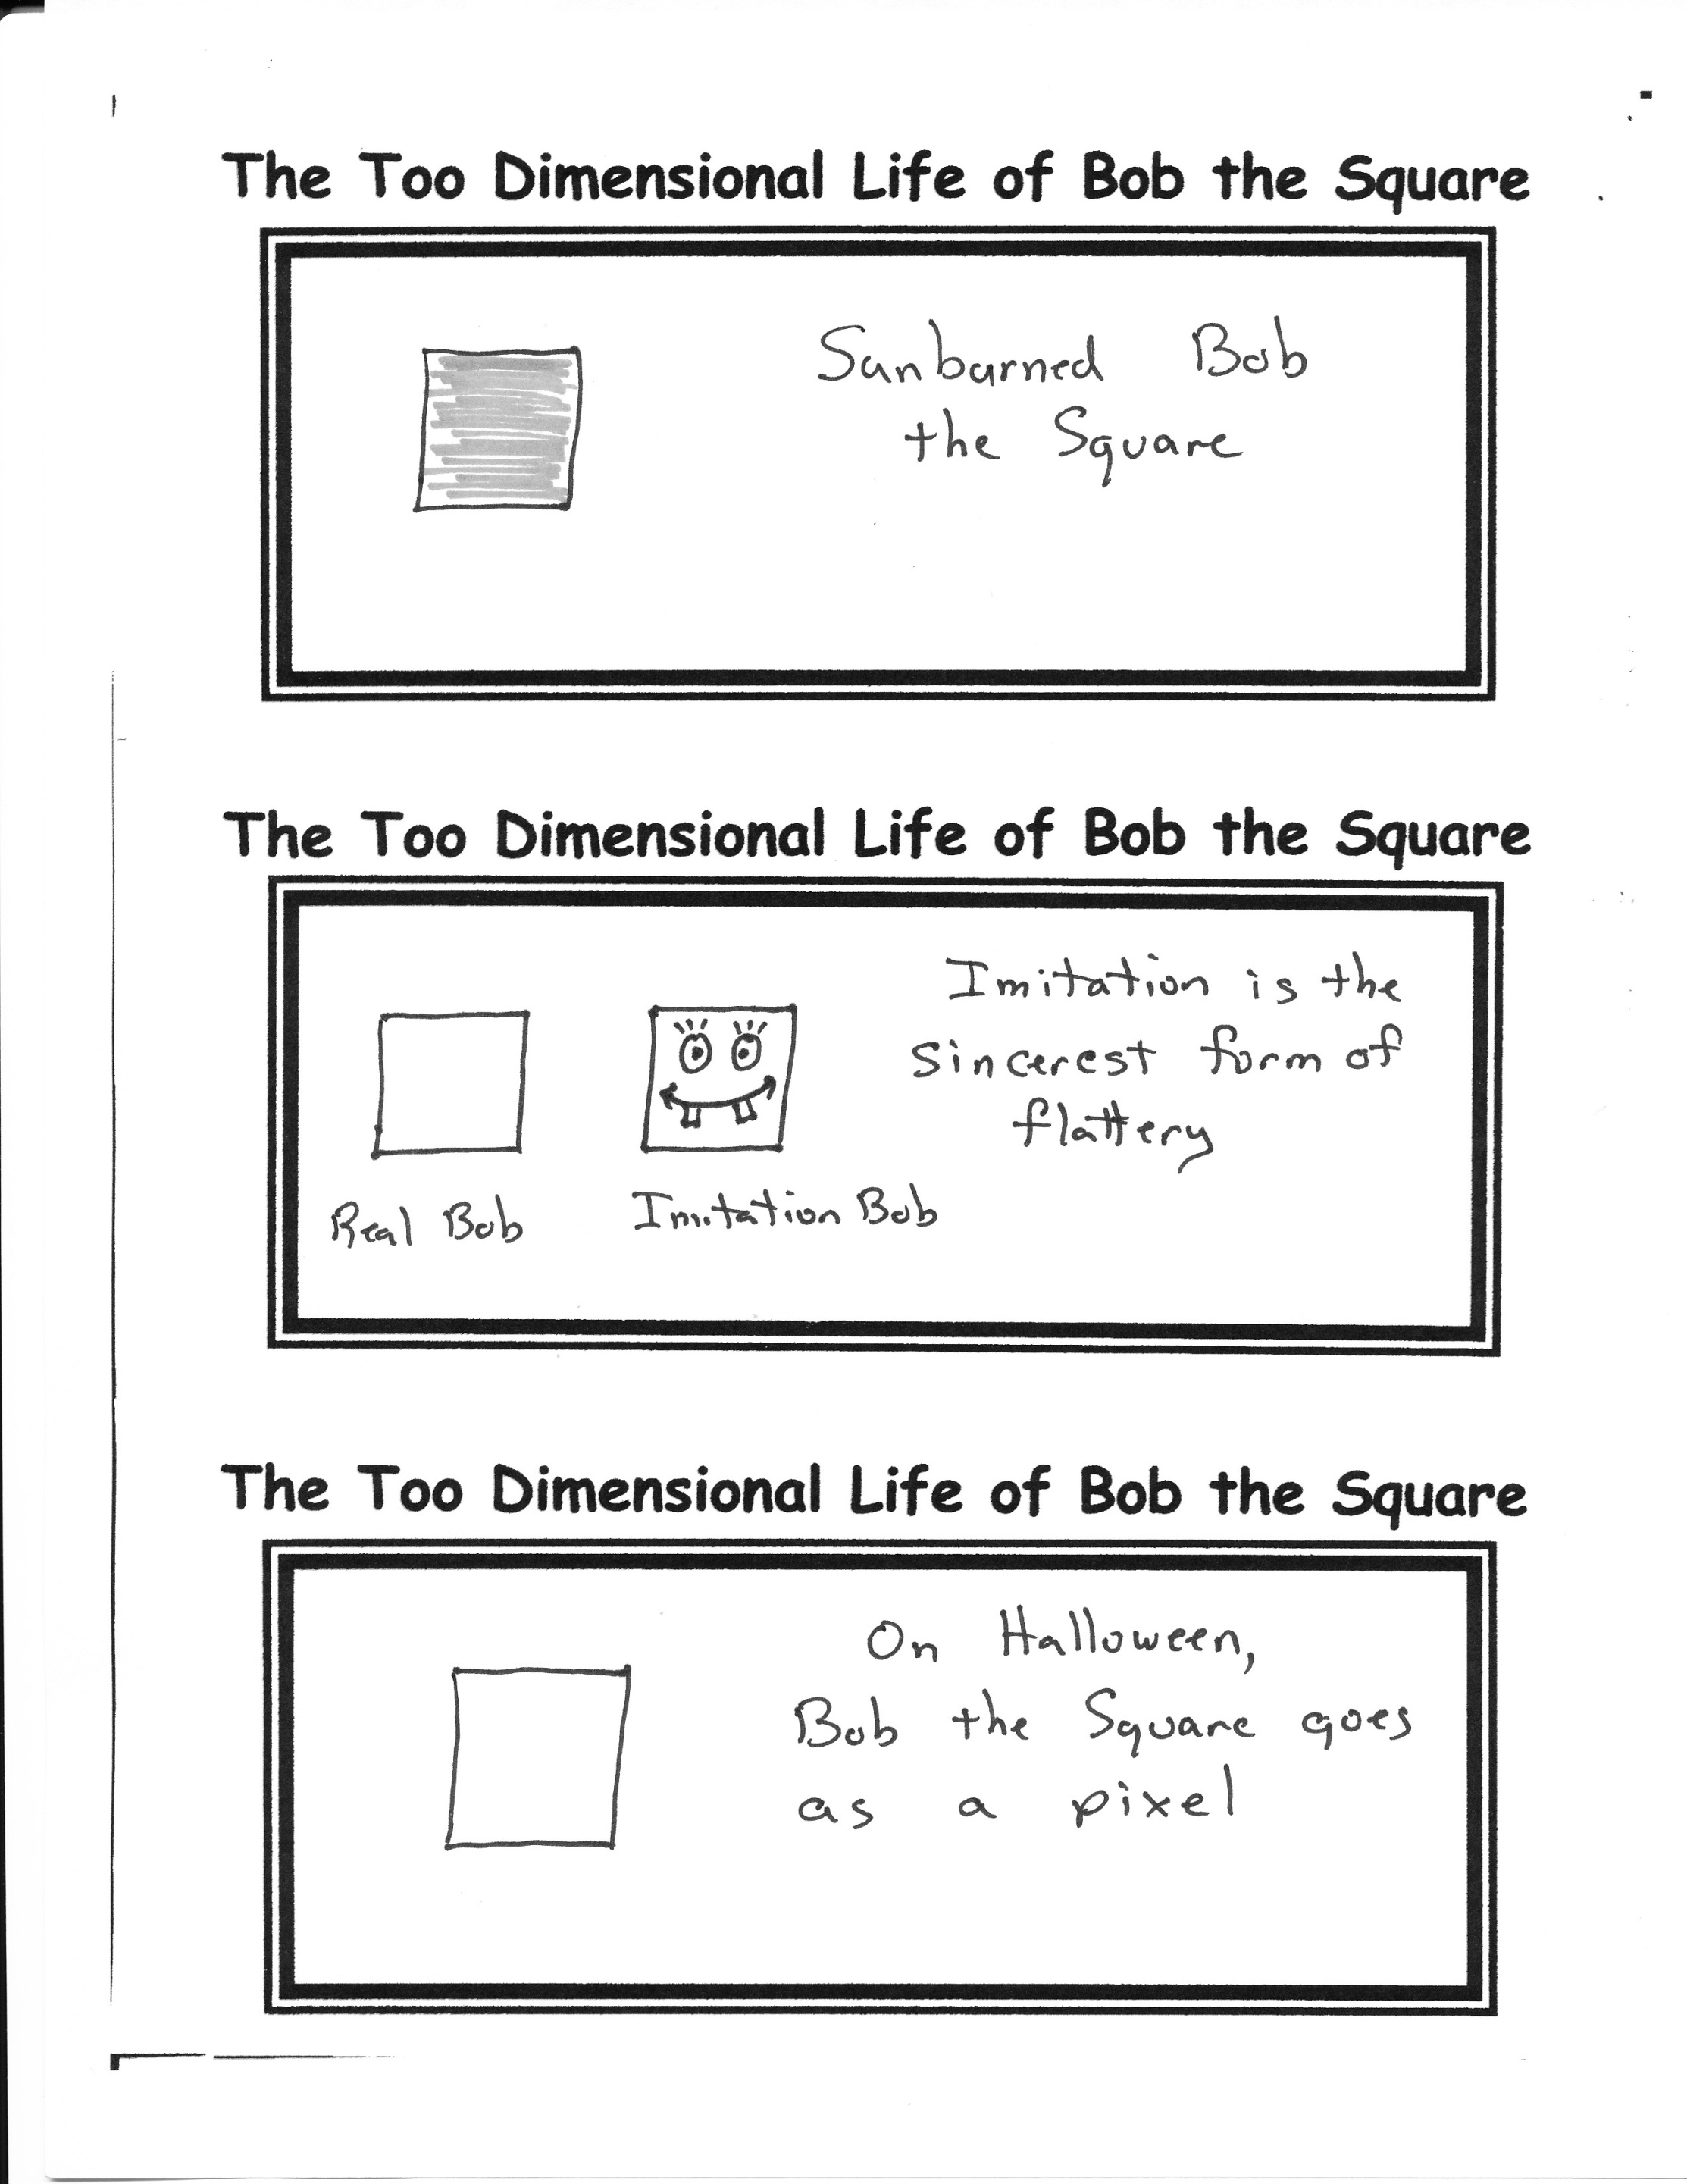 The Too Dimensional Life of Bob the Square
Sunburned Bob
the Square
The Too Dimensional Life of Bob the Square
Imitation is the
sincerest form of
flattery
Real Bob
Imitation Bob
The Too Dimensional Life of Bob the Square
On Halloween,
Bob the Square goes
as a pixel